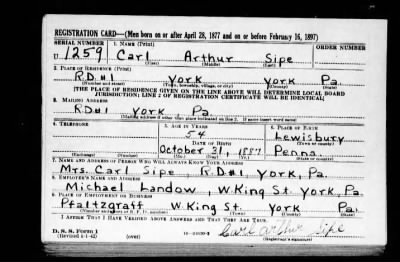 REGISTRATION CARD—(Men born on or after April 28, 1877 and on or before February 16, 1897)
SERIAL NUMBER 1. NAME (Print) ORDER NUMBER
U 1259 Carl Arthur Sipe
(First) (Middle) (Last)
2. PLACE OF RESIDENCE (Print)
R.D.#1 York York Pa.
(Number and street) (Town, township, village, or city) (County) (State)
[THE PLACE OF RESIDENCE GIVEN ON THE LINE ABOVE WILL DETERMINE LOCAL BOARD
JURISDICTION; LINE 2 OF REGISTRATION CERTIFICATE WILL BE IDENTICAL]
3. MAILING ADDRESS
R.D#1 York Pa.
[Mailing address if other than place indicated on line 2. If same insert word same]
4. TELEPHONE 5. AGE IN YEARS 6. PLACE OF BIRTH
54 Lewisbury
DATE OF BIRTH (Town or county)
October 31, 1887 Penna.
(Exchange) (Number) (Mo.) (Day) (Yr.) (State or country)
7. NAME AND ADDRESS OF PERSON WHO WILL ALWAYS KNOW YOUR ADDRESS
Mrs. Carl Sipe, R.D#1 York, Pa.
8. EMPLOYER'S NAME AND ADDRESS
Michael Landow, W. King St. York, Pa.
9. PLACE OF EMPLOYMENT OR BUSINESS
Pfaltzgraff W. King St. York Pa.
(Number and street or R. F. D. number) (Town) (County) (State)
I AFFIRM THAT I HAVE VERIFIED ABOVE ANSWERS AND THAT THEY ARE TRUE.
D. S. S. Form 1 Carl Arthur Sipe
(Revised 4-1-42) (over) (Registrant's signature)